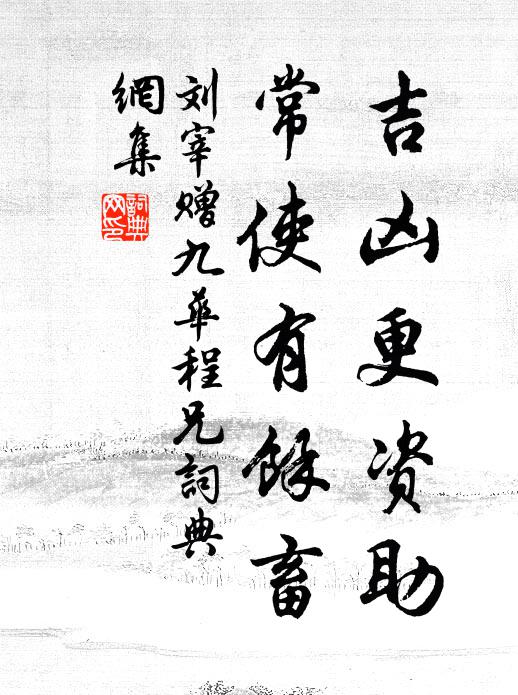 吉凶更资助
常使有馀畜
刘宰赠九华程兄词典
網集
詞典
网印